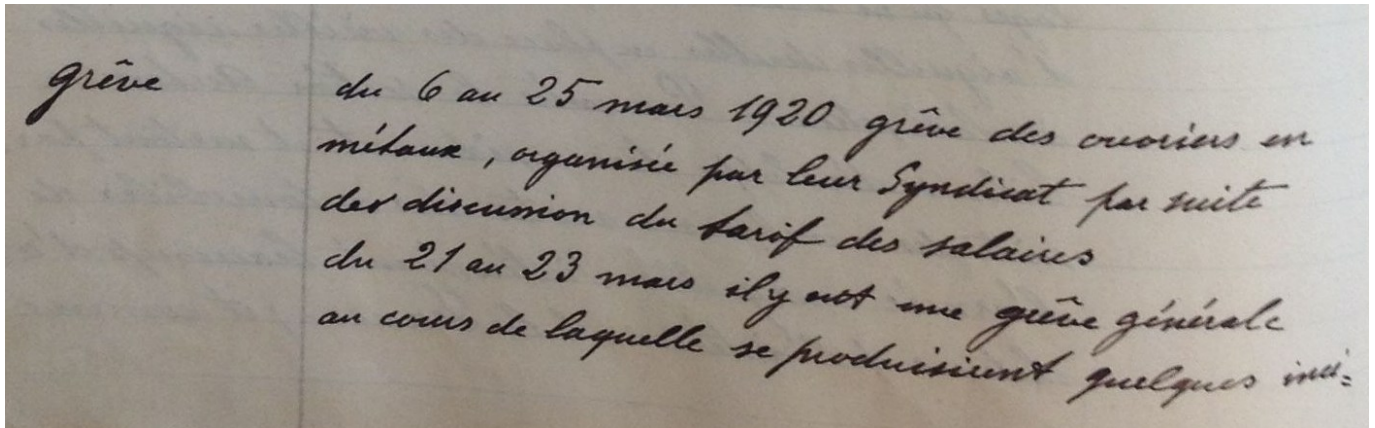 grêve du 6 au 25 mars 1920 grêve des ouvriers en
métaux, organisée par leur Syndicat par suite
des discussion du tarif des salaires
du 21 au 23 mars il y eut une grêve générale
au cours de laquelle se produisirent quelques inci=